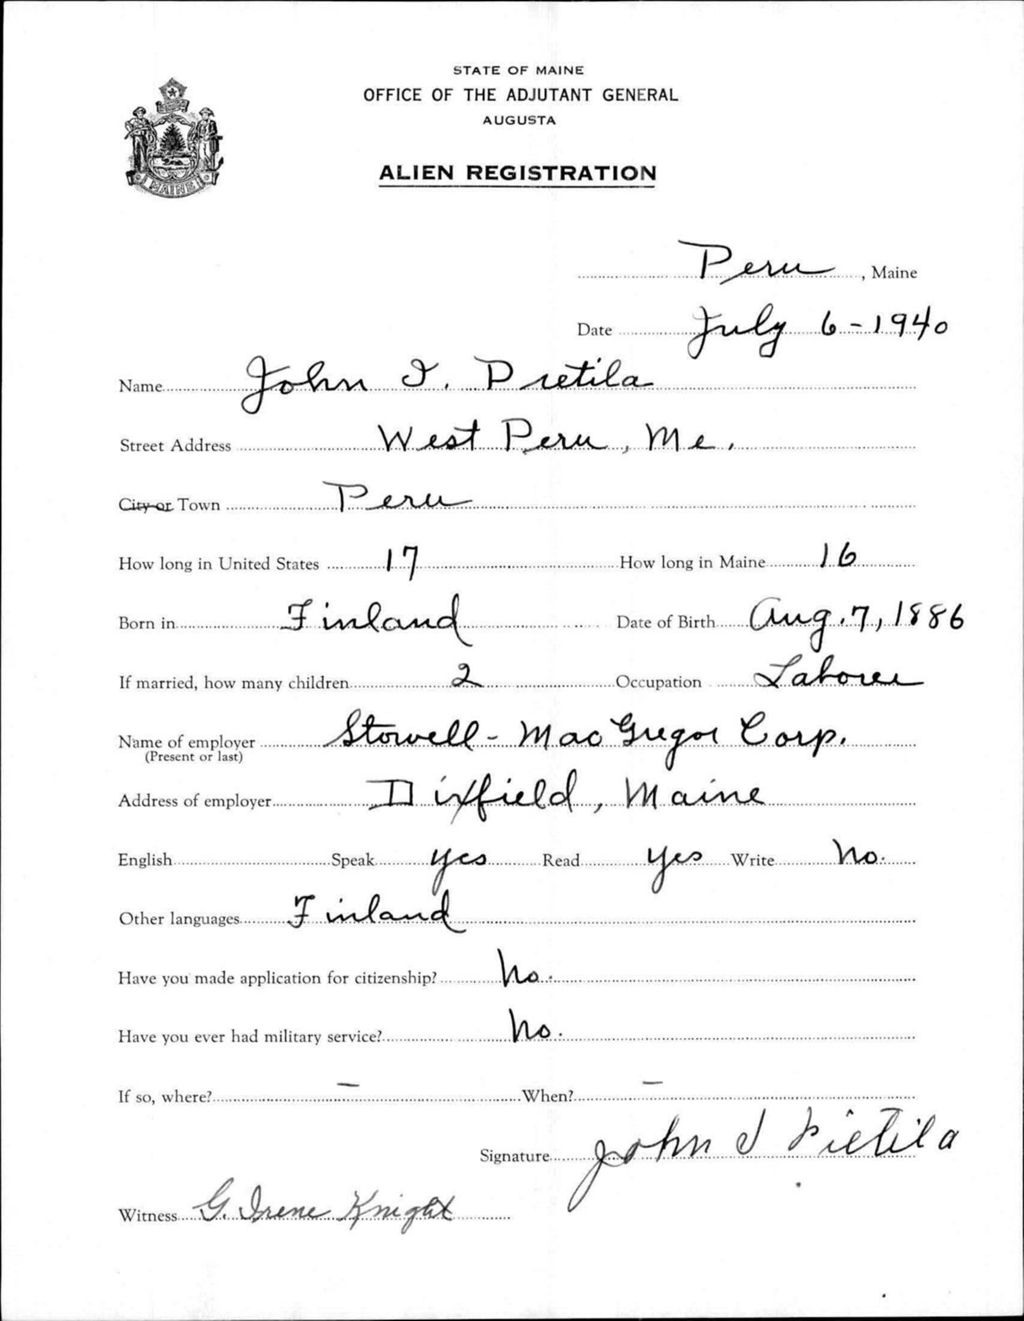 STATE OF MAINE
OFFICE OF THE ADJUTANT GENERAL
AUGUSTA
ALIEN REGISTRATION
MAINE
Peru, Maine
Date July 6-1940
Name John I. Pietila
Street Address West Peru, Me.
City or Town Peru
How long in United States 17 How long in Maine 16
Born in Finland Date of Birth Aug. 7, 1886
If married, how many children 2 Occupation Laborer
Name of employer Stowell-MacGregor Corp.
(Present or last)
Address of employer Dixfield, Maine
English Speak yes Read yes Write No.
Other languages Finland
Have you made application for citizenship? No.
Have you ever had military service? No.
If so, where? — When? —
Signature John I Pietila
Witness G. Irene Knight